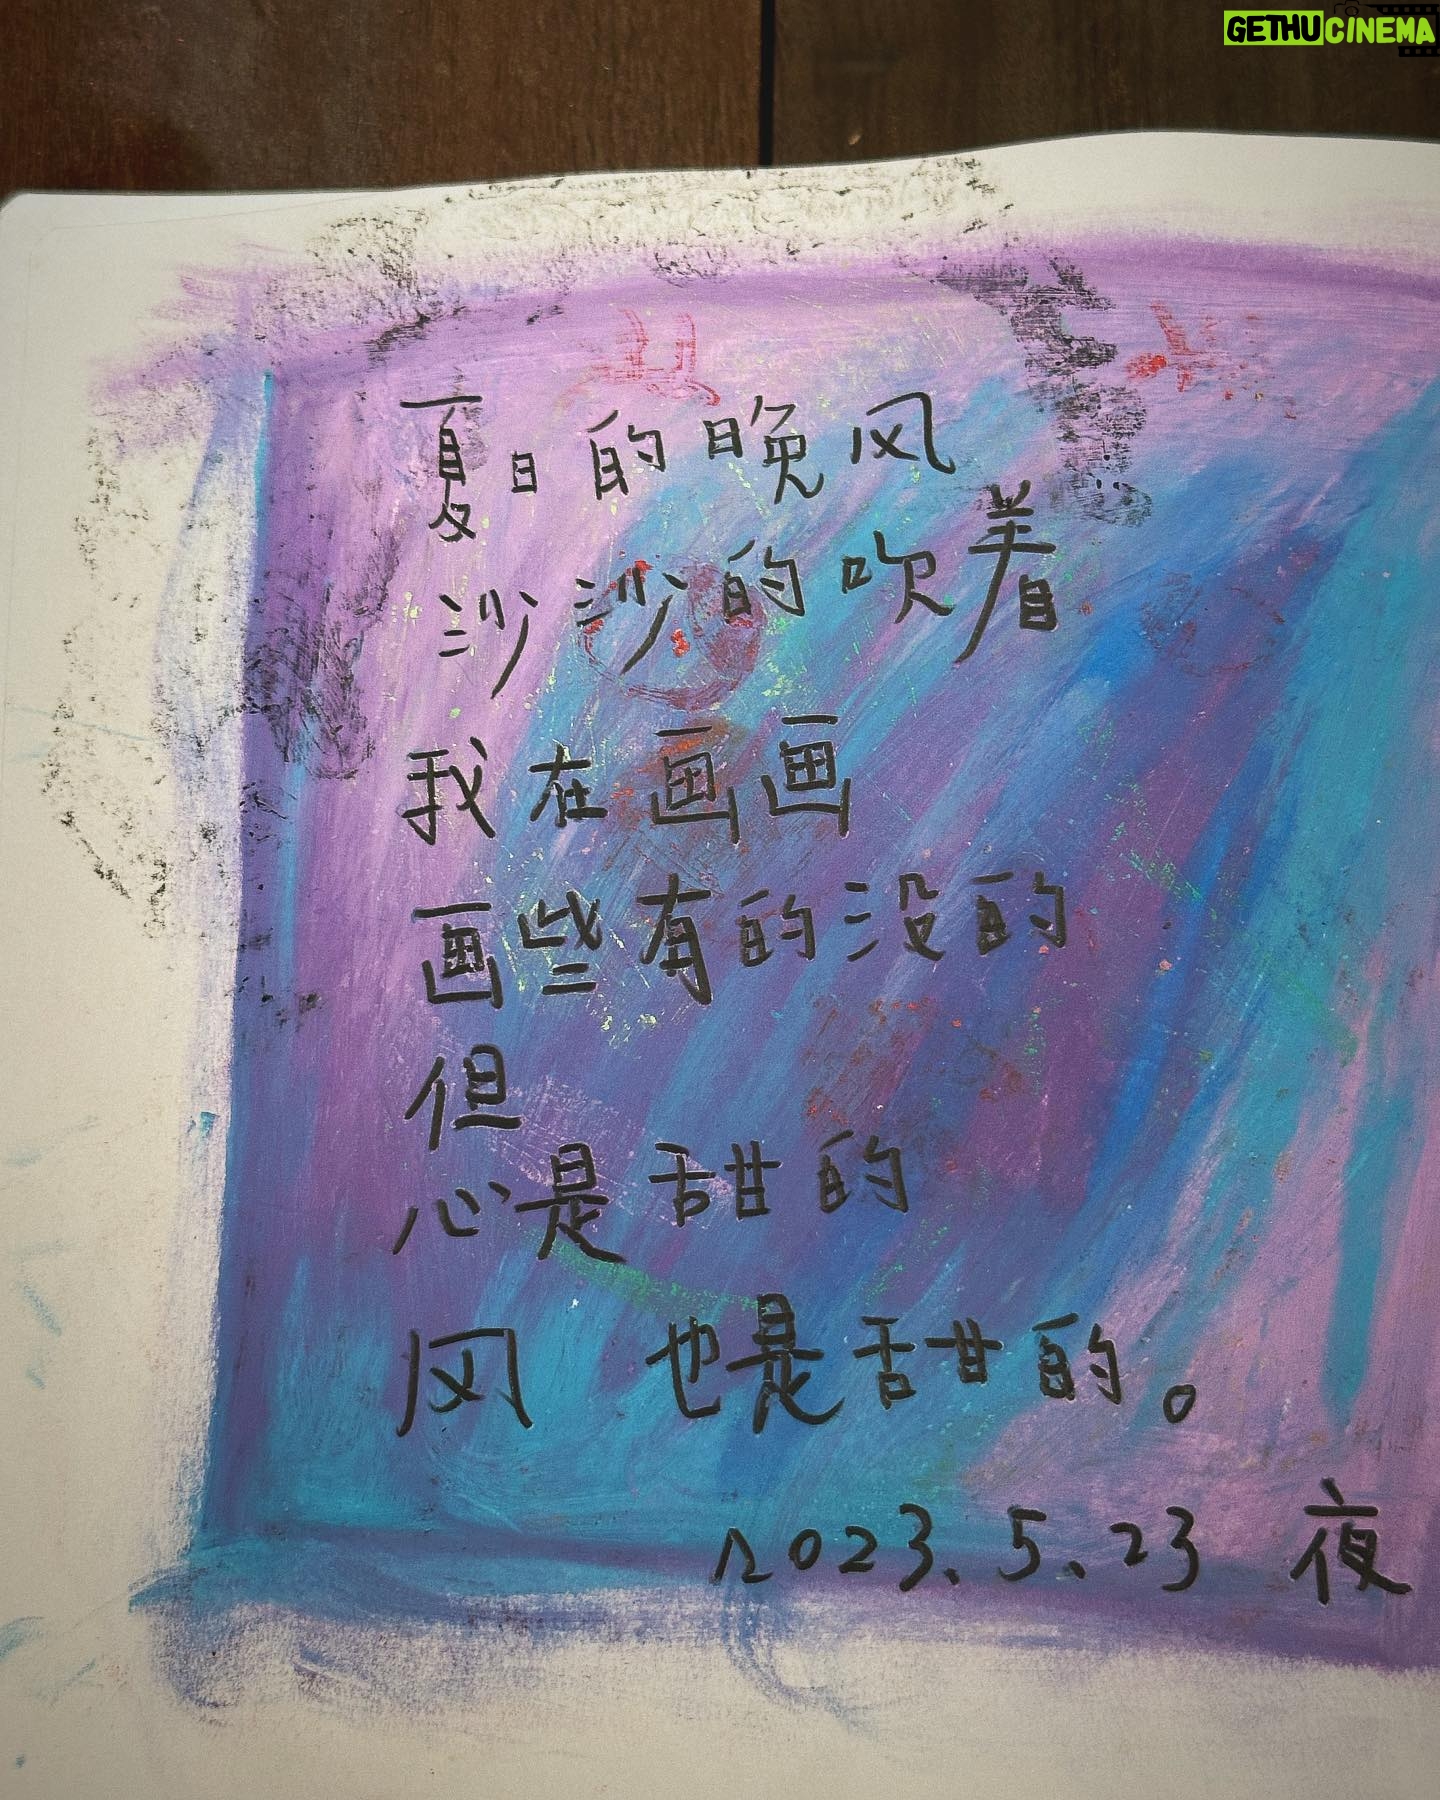 GETHUCINEMA
夏日的晚风
沙沙的吹着
我在画画
画些有的没的
但
心是甜的
风 也是甜的。
2023.5.23 夜